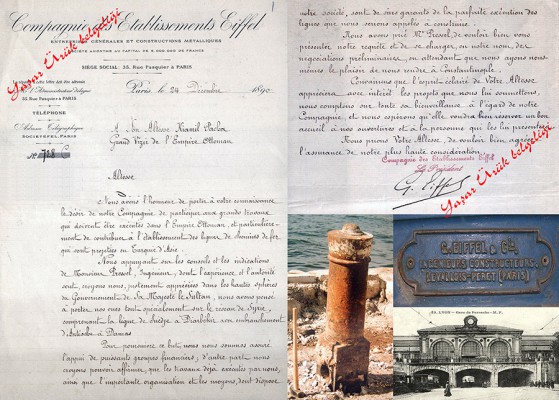 1
Compagnie des Etablissements Eiffel
ENTREPRISES GÉNÉRALES ET CONSTRUCTIONS MÉTALLIQUES
SOCIÉTÉ ANONYME AU CAPITAL DE
SIÈGE SOCIAL: 35, Rue Pasquier à PARIS
35, Rue Pasquier à PARIS
Paris, le 24 Décembre 1890
TÉLÉPHONE
Adresse Télégraphique
A Son Altesse Kiamil Pacha
Grand Vizir de l'Empire Ottoman
Altesse
Nous avons l'honneur de porter à votre connaissance
le désir de notre Compagnie de participer aux grands travaux
qui doivent être exécutés dans l'Empire Ottoman, et particulière-
ment de contribuer à l'établissement des lignes de chemins de fer
qui sont projetées en Turquie d'Asie.
Nous appuyant sur les conseils et les indications
de Monsieur Pressel, Ingénieur, dont l'expérience et l'autorité
sont, croyons nous, justement appréciées dans les hautes sphères
du Gouvernement de Sa Majesté le Sultan, nous avons pensé
à porter nos vues tout spécialement sur le réseau de Syrie,
comprenant la ligne de à Diarbékir, son embranchement
d'Antioche à Damas
Pour poursuivre ce but nous nous sommes assuré
l'appui de puissants groupes financiers; d'autre part nous
croyons pouvoir affirmer, que les travaux déjà exécutés par nous,
ainsi que l'importante organisation et les moyens dont dispose
notre société, sont de sûrs garants de la parfaite exécution des
lignes que nous serions appelés à construire.
Nous avons prié Mr Pressel, de vouloir bien vous
présenter notre requête et de se charger, en notre nom, des
négociations préliminaires, en attendant que nous ayons nous
mêmes le plaisir de nous rendre à Constantinople.
Convaincus que l'esprit éclairé de Votre Altesse
appréciera avec intérêt les projets que nous lui soumettons,
nous comptons sur toute sa bienveillance à l'égard de notre
Compagnie, et nous espérons qu'elle voudra bien réserver un bon
accueil à nos ouvertures et à la personne qui les lui présentera.
Nous prions Votre Altesse, de vouloir bien agréer
l'assurance de notre plus haute considération.
Compagnie des Etablissements Eiffel
Le Président
G. Eiffel
Yaşar Ürük belgeliği
Yaşar Ürük belgeliği
G. EIFFEL & Cie
INGENIEURS CONSTRUCTEURS
LEVALLOIS-PERRET (PARIS)
LYON - Gare de Perrache